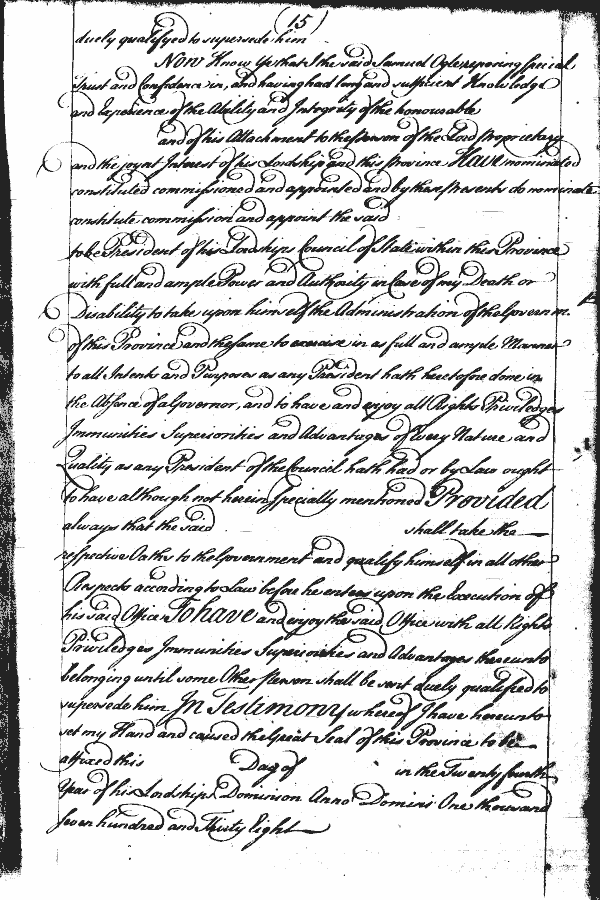 (15)
duely qualifyed to supersede him
Now Know Ye that I the said Samuel Ogle reposing special
Trust and Confidence in, and having had long and sufficient Knowledge
and Experience of the Ability and Integrity of the honourable
and of his Attachment to the Person of the Lord Proprietary
and the joynt Interest of his Lordship and this Province Have nominated
constituted commissioned and appointed and by these Presents do nominate
constitute commission and appoint the said
to be President of his Lordships Council of State within this Province
with full and ample Power and Authority in Case of my Death or
Disability to take upon himself the Administration of the Governm.
of this Province and the same to exercise in as full and ample Manner
to all Intents and Purposes as any President hath heretofore done in
the Absence of a Governor, and to have and enjoy all Rights Priviledges
Immunities Superiorities and Advantages of Every Nature and
Quality as any President of the Council hath had or by Law ought
to have although not herein specially mentioned Provided
always that the said shall take the
respective Oaths to the Government and qualify himself in all other
Respects according to Law before he enters upon the Execution of
his said Office To have and enjoy the said Office with all Rights
Priviledges Immunities Superiorities and Advantages thereunto
belonging until some Other person shall be sent duely qualified to
supersede him In Testimony whereof I have hereunto
set my Hand and caused the Great Seal of this Province to be
affixed this Day of in the Twenty fourth
Year of his Lordships Dominion Anno Domini One thousand
seven hundred and Thirty Eight